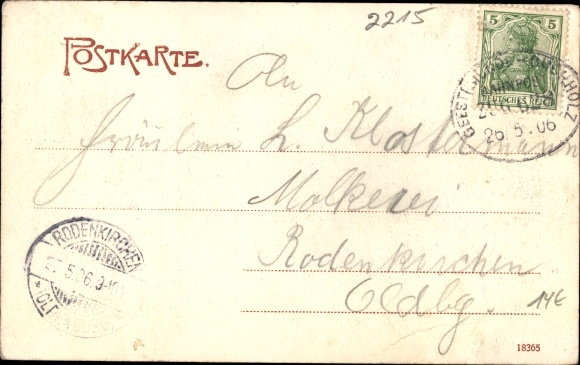 2215
POSTKARTE.
5 5
DEUTSCHES REICH
BAHNPOST
26.5.06
An
Fräulein L. Klostermann
Molkerei
Rodenkirchen
Oldbg.
14€
RODENKIRCHEN
27.5.06.
18365